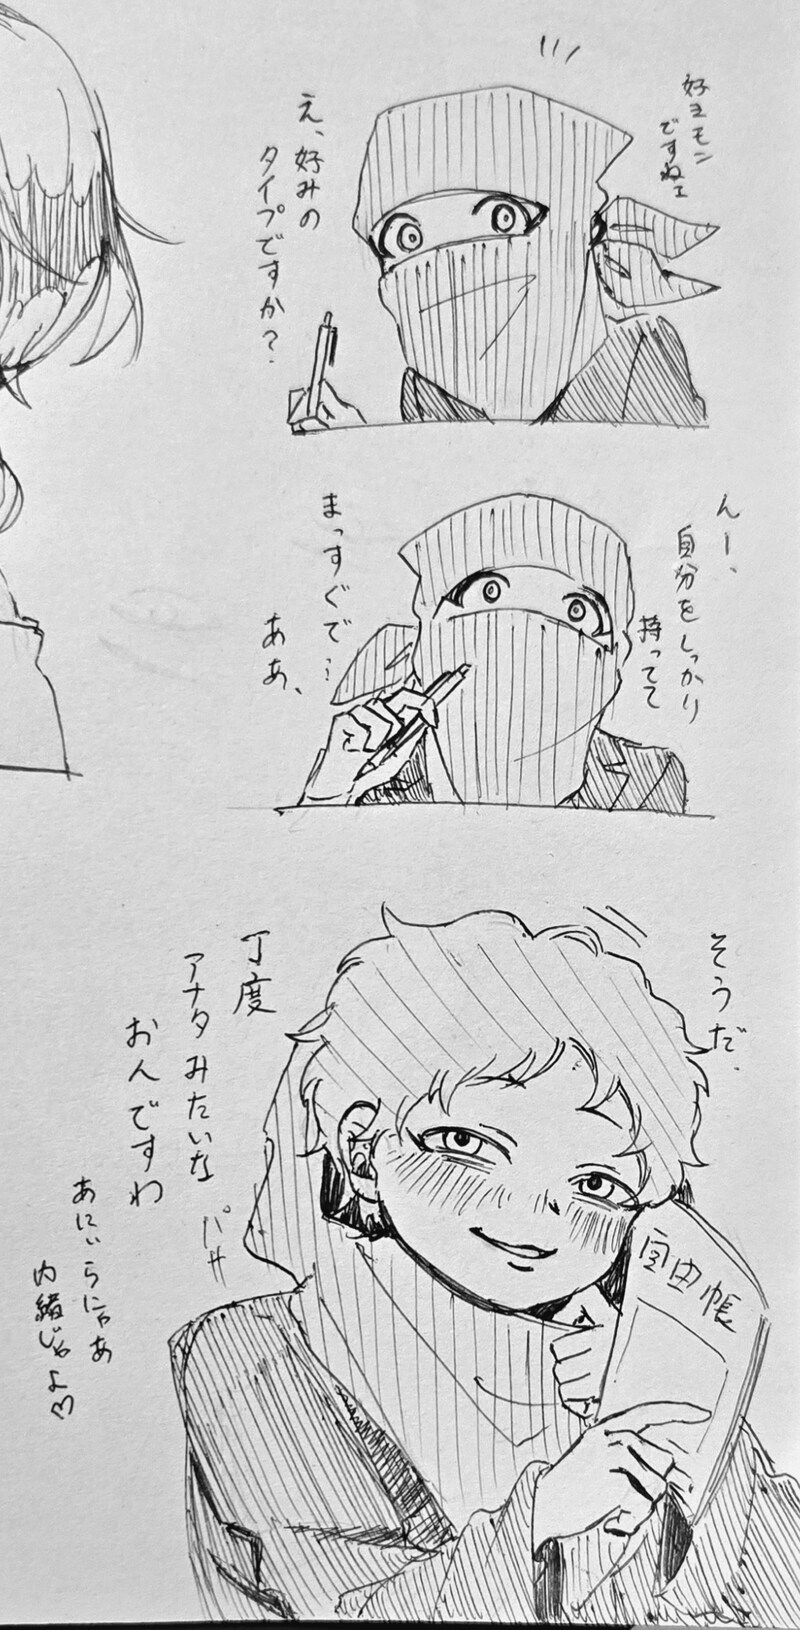 え、好みの
タイプですか？
好きモン
ですねェ
んー、
自分をしっかり
持ってて
まっすぐで…
ああ、
そうだ、
丁度
アナタみたいな
おんですわ
パサ
あにぃらにゃあ
内緒じゃよ♡
自由帳